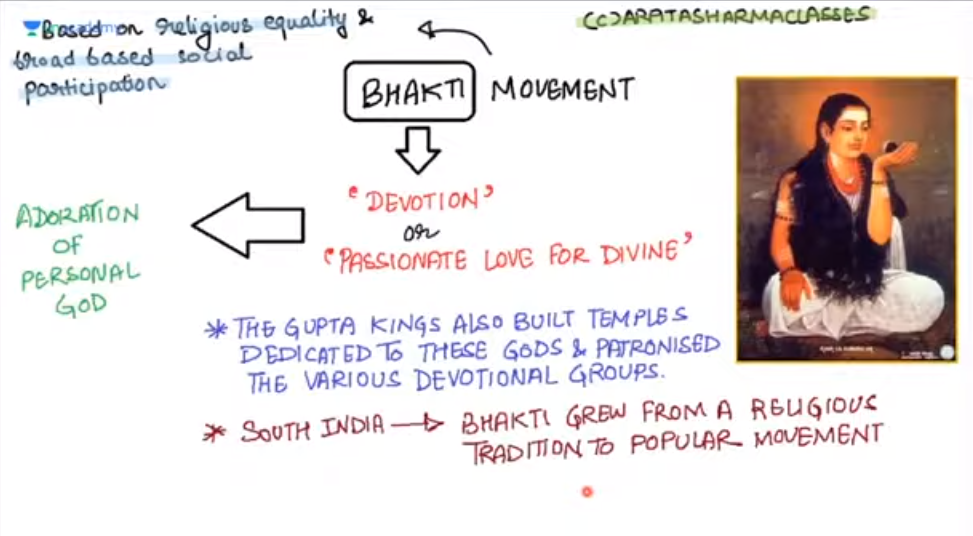 Based on religious equality &
broad based social
participation
(C)ARATASHARMACLASSES
BHAKTI MOVEMENT
"DEVOTION"
or
"PASSIONATE LOVE FOR DIVINE"
ADORATION
OF
PERSONAL
GOD
* THE GUPTA KINGS ALSO BUILT TEMPLES
DEDICATED TO THESE GODS & PATRONISED
THE VARIOUS DEVOTIONAL GROUPS.
* SOUTH INDIA → BHAKTI GREW FROM A RELIGIOUS
TRADITION TO POPULAR MOVEMENT